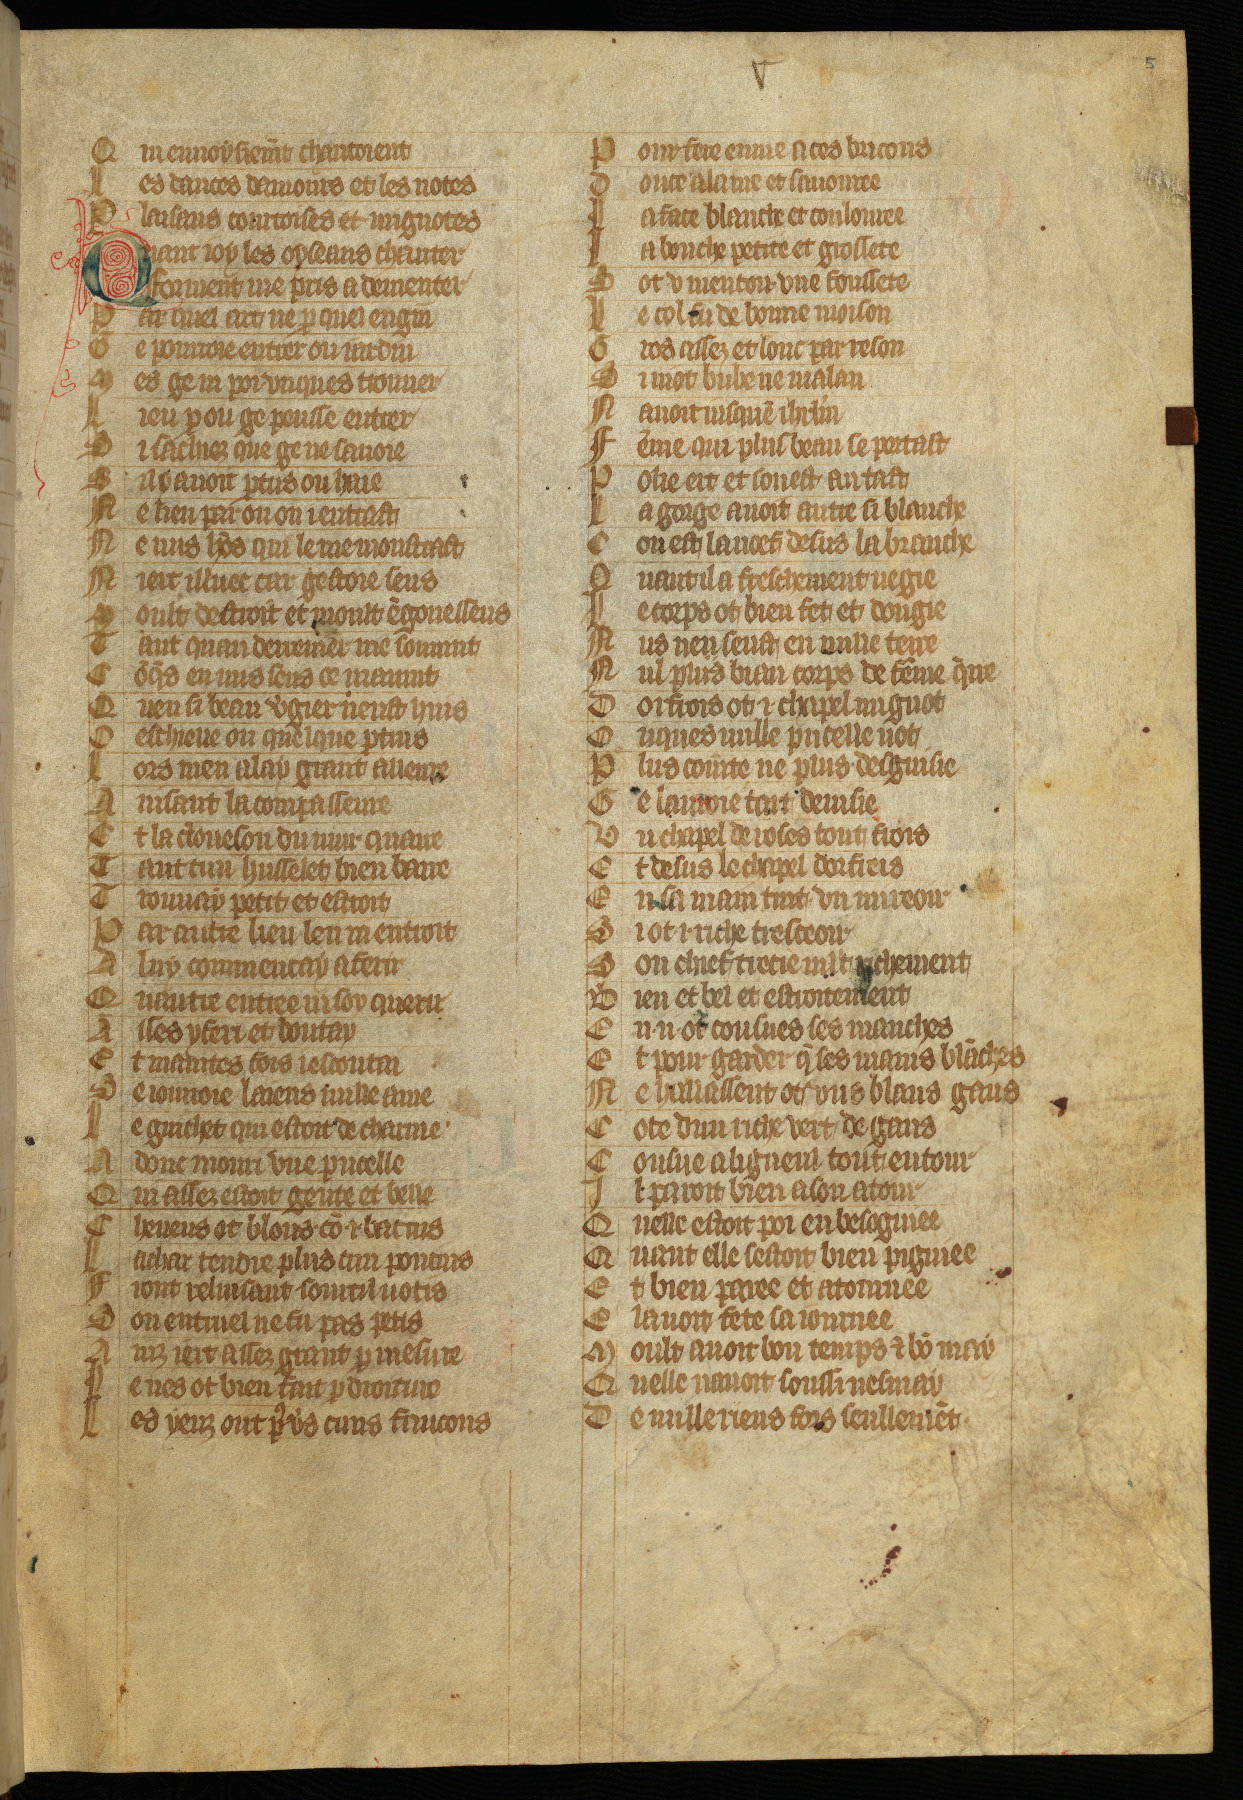 V
5
Qui en noysiemt chantoient
Les dances damours et les notes
Plaisans courtoises et mignotes
Quant ioy les oyseaus chanter
Forment me pris a dementer
Par quel art ne p quel engin
Ge pourroie entrer ou iardin
Mes ge ni poi vnques trouuer
Lieu p ou ge peusse entrer
Si sachiez que ge ne sauoie
Sil y auoit ptuis ou haie
Ne lieu par ou on i entrast
Ne nus hōs qui le me monstrast
Niert illuec car gestoie seus
Moult destroit et moult ēgouesseus
Tant quan derrenier me souuint
Cōq̄s en nus sens ce mauint
Quen si beau vgier neust huis
Oeschiele ou quelque ptuis
Lors men alay grant alleure
Auisant la compasseure
Et la cloueson du mur quarre
Tant cun husselet bien barre
Trouuay petit et estroit
Par autre lieu len ni entroit
A luy commencay a ferir
Quautre entree ni soy querir
Asses y feri et boutay
Et maintes fois iescoutai
Se iourroie laiens nulle ame
Le guichet qui estoit de charme
Adonc mouri vne pucelle
Qui assez estoit gente et belle
Cheueus ot blons cō i bacins
La char tendre plus cun poucins
Front reluisant sourcil uotis
Son entruel ne fu pas petis
Ainz iert assez grant p mesure
Le nes ot bien fait p droiture
Les yeuz out pl9 vs cuns faucons
Pour fere enuie a ces bricons
Douce alaine et sauouree
La face blanche et coulouree
La bouche petite et grossete
Sot v menton vne foussete
Le col fu de bonne moison
Gros assez et lonc par reson
Si not bube ne malan
Nauoit iusquē ihrlm
Fēme qui plus beau se portast
Polie ert et souest au tast
La gorge auoit autre si blanche
Con est la noef desus la branche
Quant il a freschement negie
Le corps ot bien fet et dougie
Nus nen seust en nulle terre
Nul plus biau corps de fēme q̄rre
Dorfrois ot i chapel mignot
Onques nulle pucelle not
Plus cointe ne plus desguisie
Ge lauroie tart deuisie
Vn chapel de roses tout frois
Et desus le chapel dorfreis
En sa main tint vn mireour
Si ot i riche trescour
Son chief trecie mlt richement
Bien et bel et estroitement
En ii ot cousues ses manches
Et pour garder q̄ ses mains blāches
Ne hallassent ot vns blans gans
Cote dun riche vert de gans
Cousue a ligneul tout entour
Il paroit bien a son atour
Quelle estoit poi enbesoignee
Quant elle sestoit bien pignee
Et bien paree et atournee
El auoit fete sa iournee
Moult auoit bon temps & bō may
Quelle nauoit soussi nesmay
De nulle riens fors seullemēt